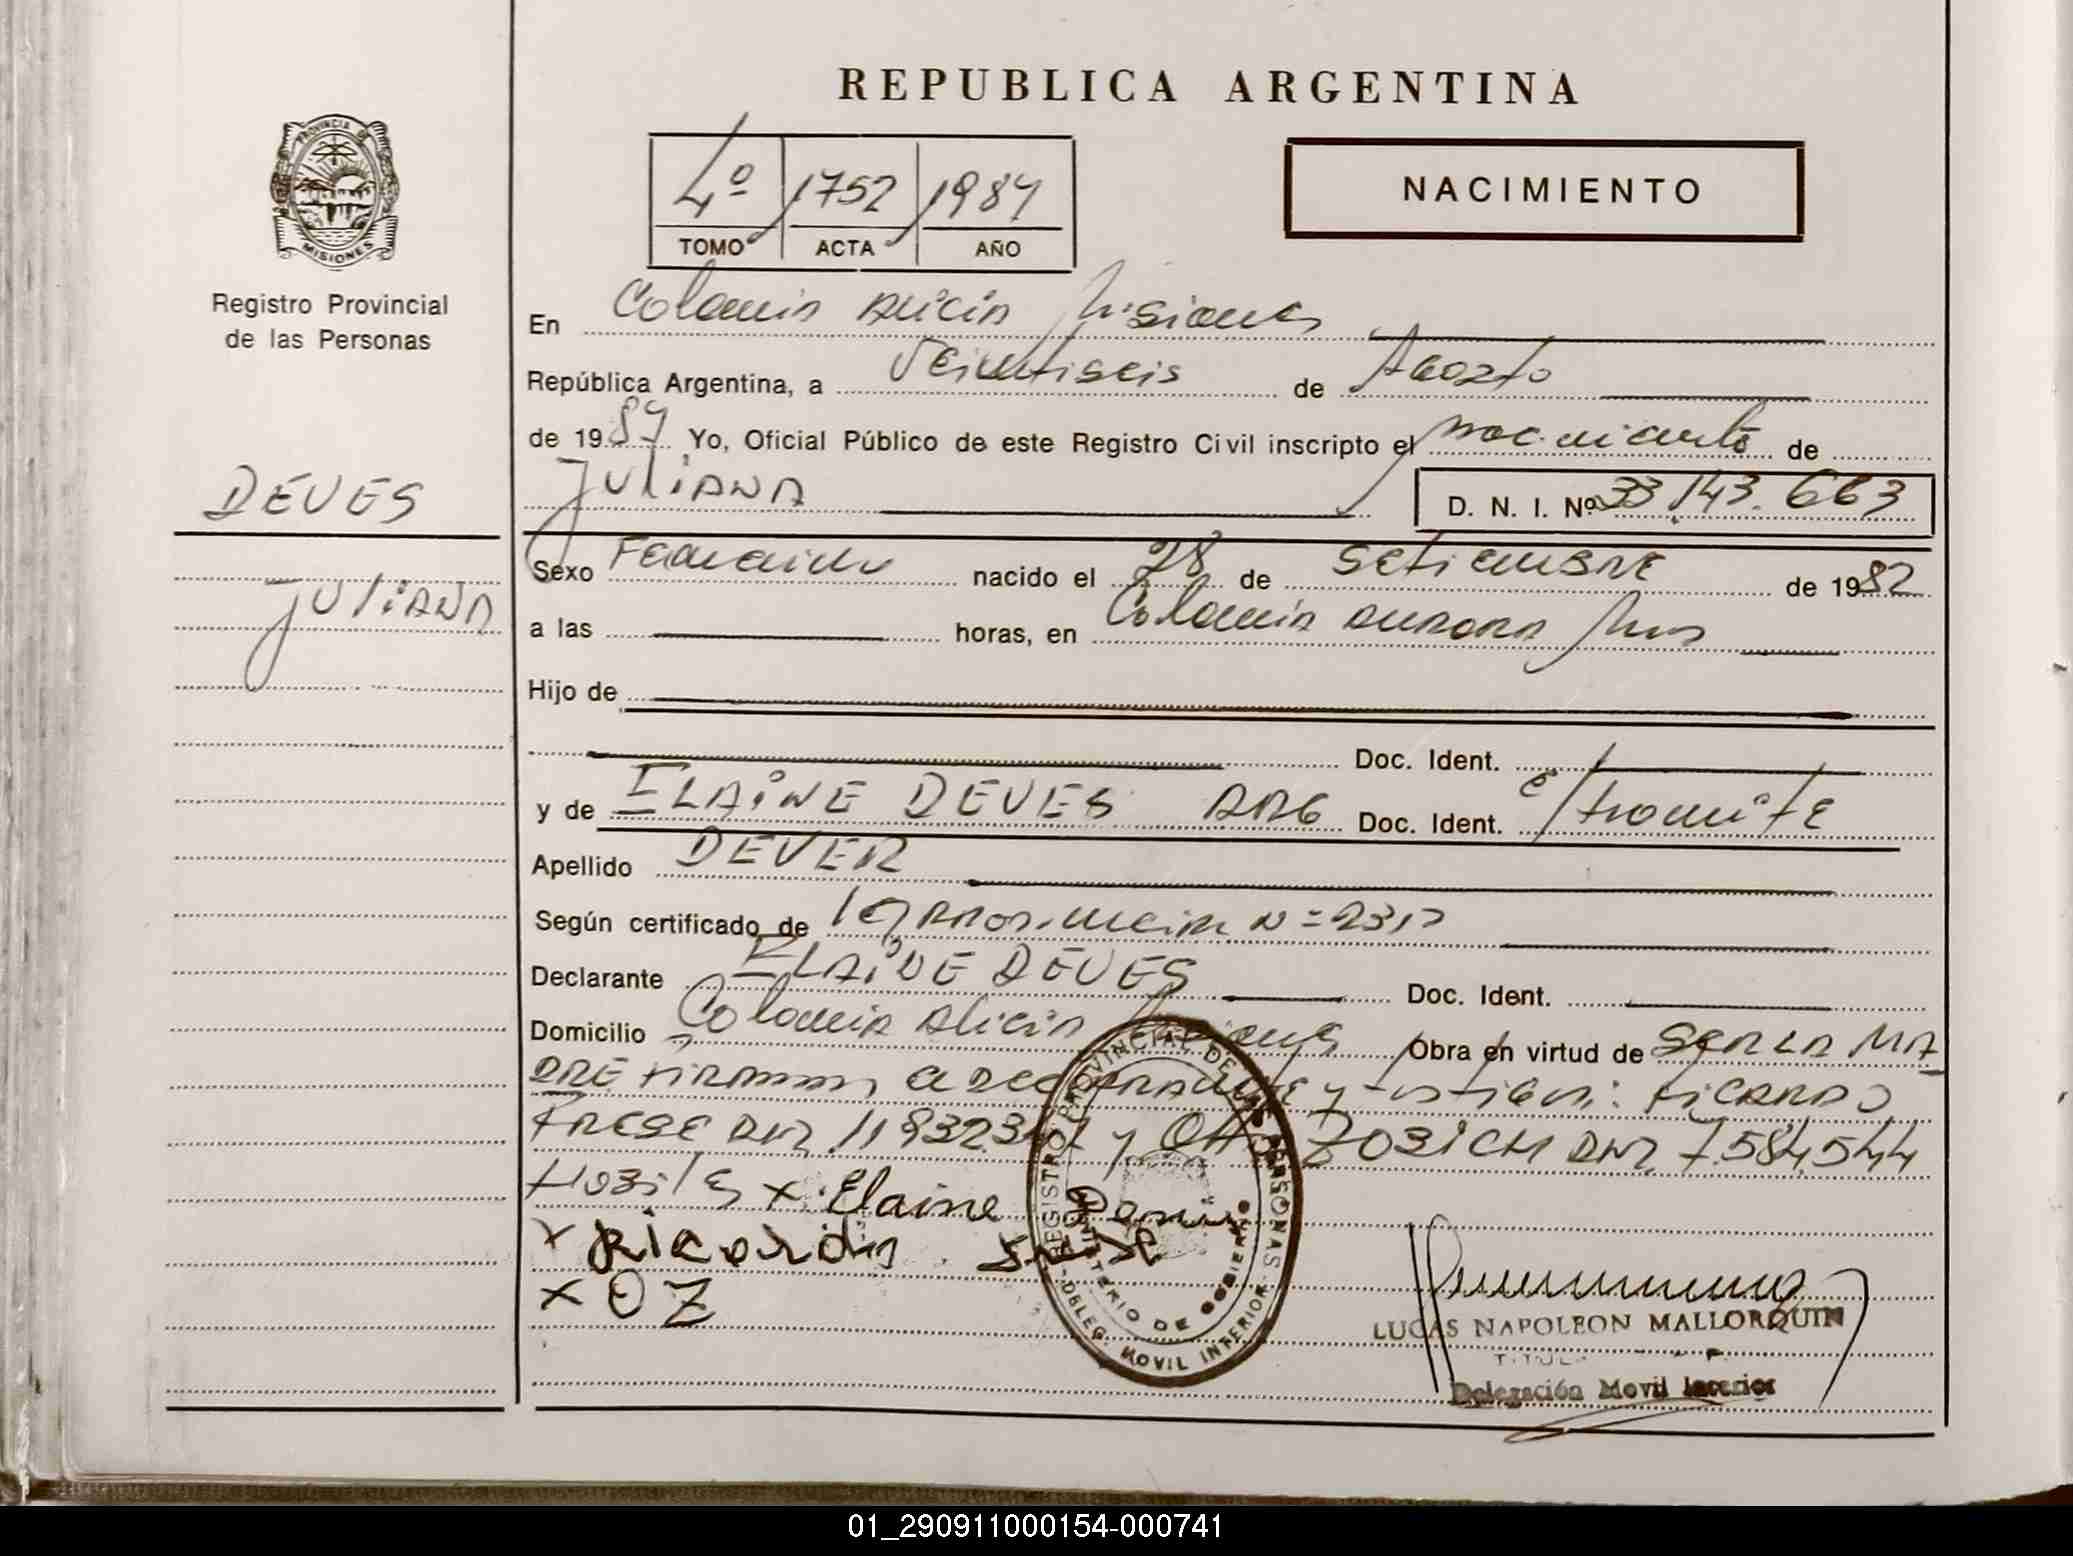 REPUBLICA ARGENTINA
PROVINCIA DE MISIONES
Registro Provincial
de las Personas
4º 1752 1987
TOMO ACTA AÑO
NACIMIENTO
En Colonia Alicia Misiones
República Argentina, a Veintiseis de Agosto
de 1987 Yo, Oficial Público de este Registro Civil inscripto el nacimiento de
JULIANA D. N. I. Nº 33.143.663
DEVES
JULIANA
Sexo Femenino nacido el 28 de Setiembre de 1982
a las horas, en Colonia Aurora Mnes
Hijo de
Doc. Ident.
y de ELAINE DEVES ARG Doc. Ident. E/tramite
Apellido DEVER
Según certificado de
Declarante ELAINE DEVES Doc. Ident.
Domicilio Colonia Alicia Misiones Obra en virtud de SER LA MA
DRE declarante y testigos: RICARDO
FRESE DNI y OTTO ZOBICH DNI 7.584.544
x Elaine
x Ricardo
x O Z
REGISTRO PROVINCIAL DE LAS PERSONAS
MINISTERIO DE GOBIERNO
DELEG. MOVIL INTERIOR
LUCAS NAPOLEON MALLORQUIN
Delegación Movil Interior
01_290911000154-000741